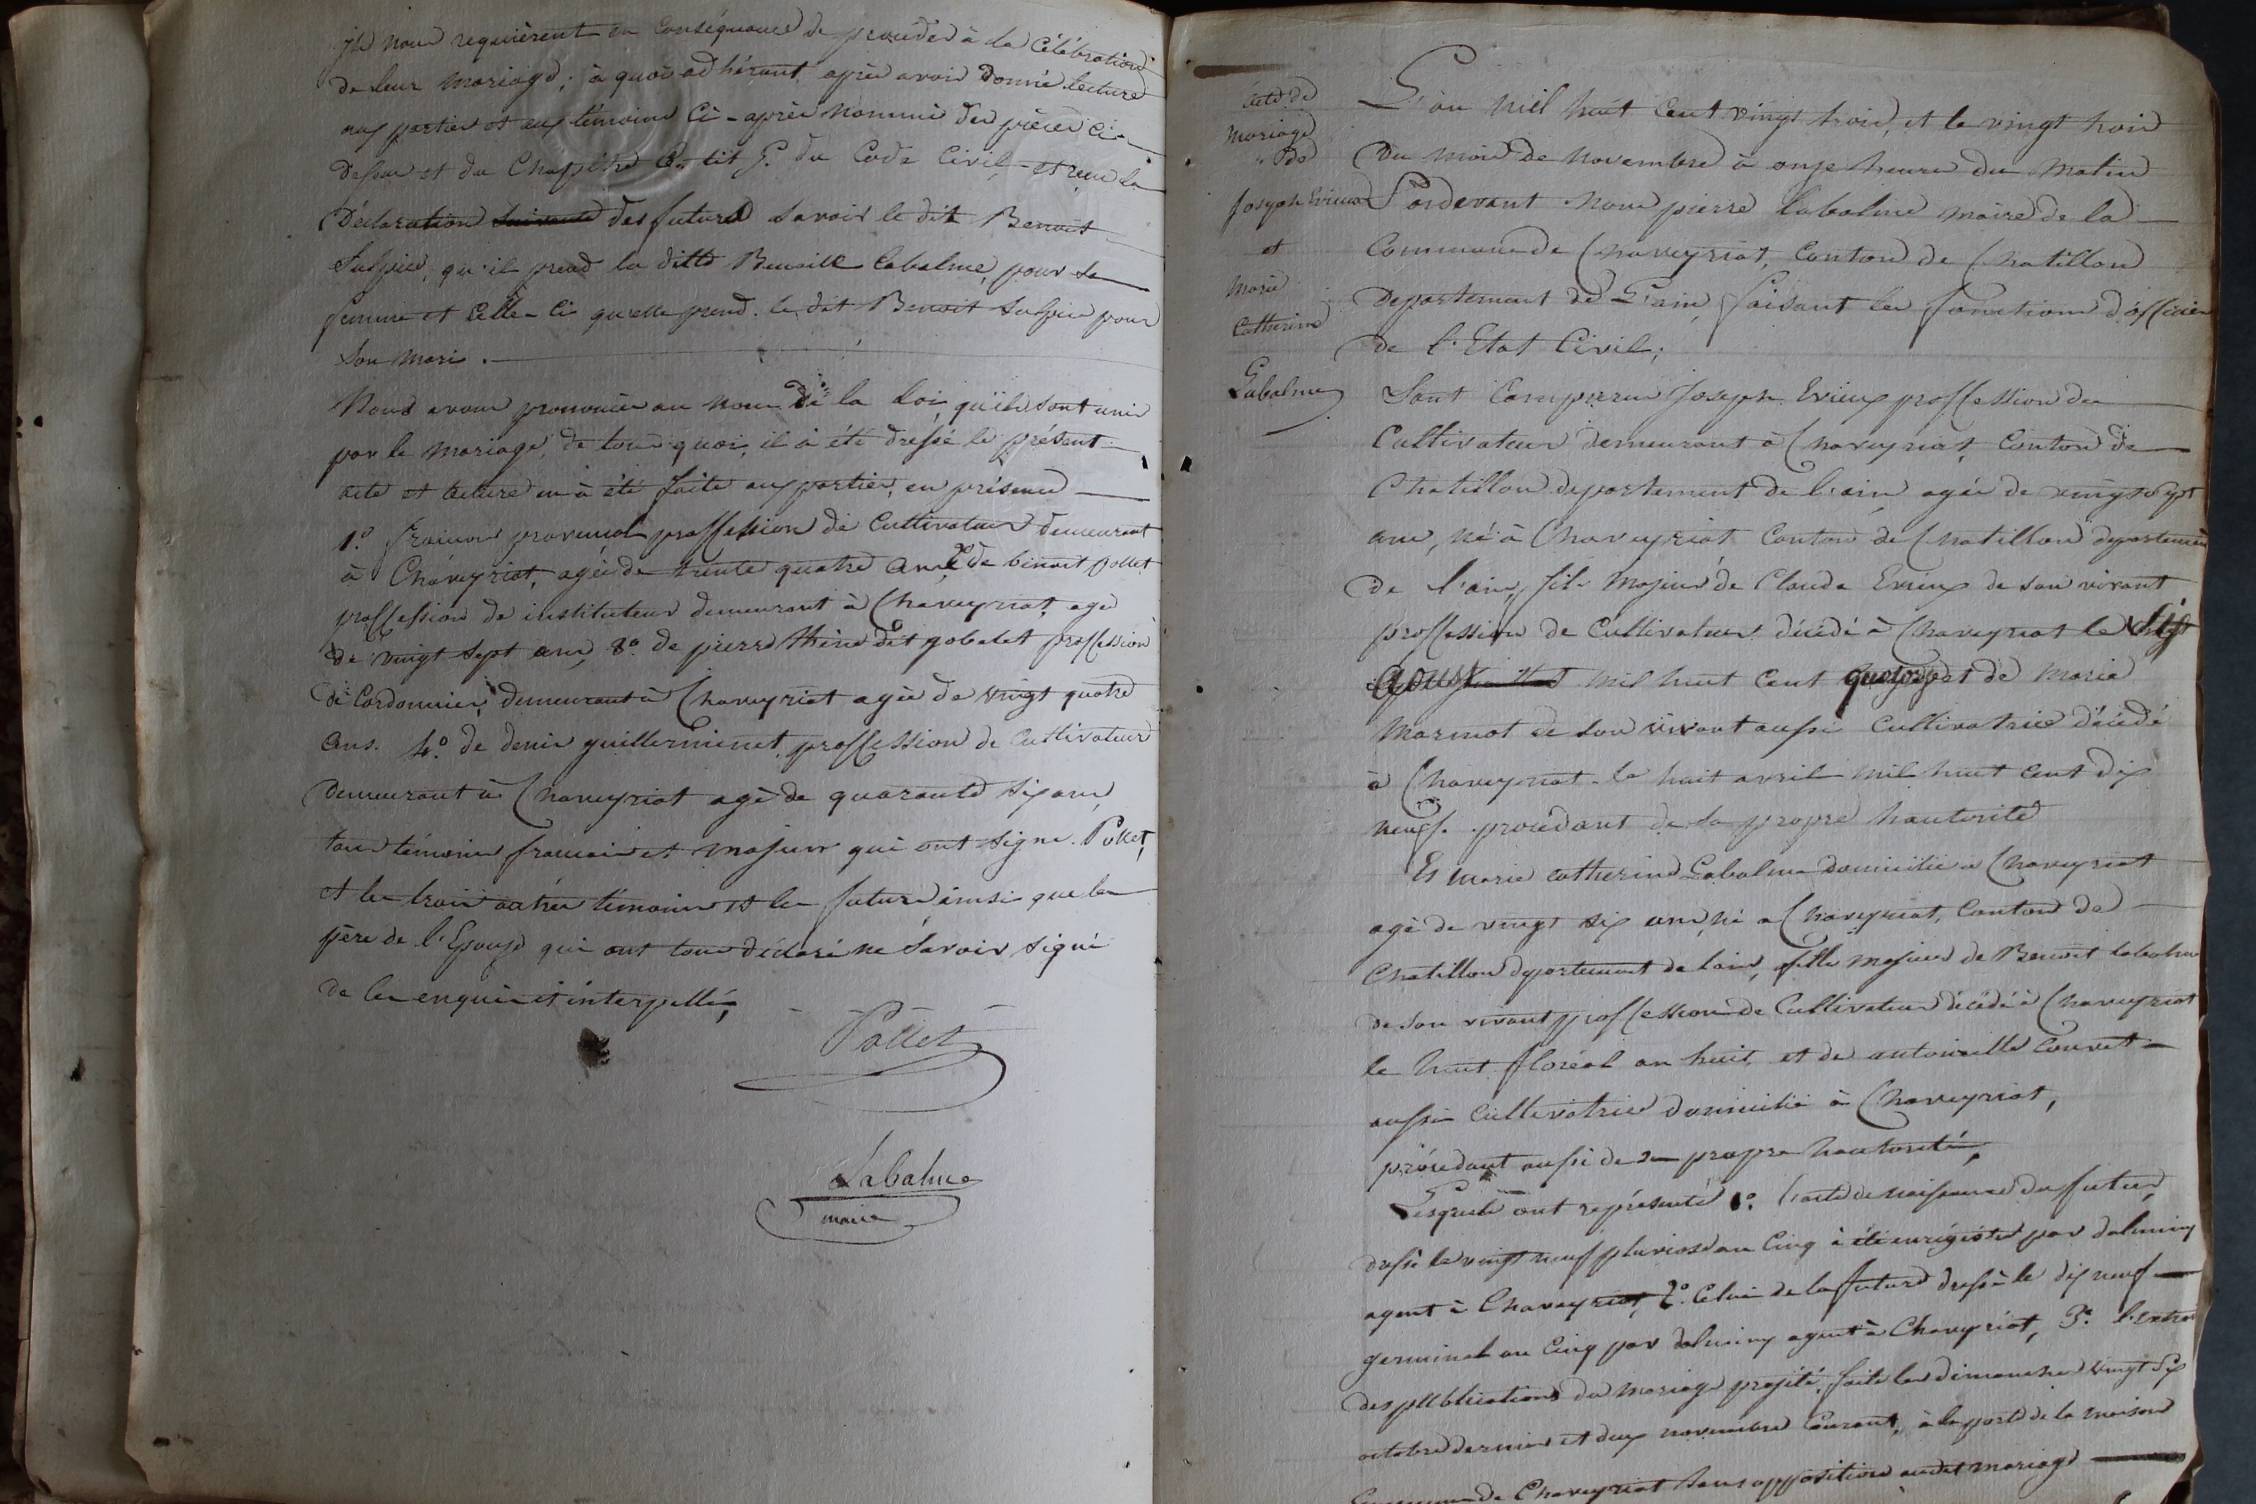 ils nous requièrent en conséquence de procéder à la célébration
de leur mariage; à quoi adhérant après avoir donné lecture
aux parties et aux témoins ci-après nommé des pièces ci-
dessus et du Chapitre du Code Civil, et reçu la
Déclaration suivante des futurs savoir le dit Benoit
Sulpice, qu'il prend la ditte Benoite Labalme, pour sa
femme et celle-ci qu'elle prend le dit Benoit Sulpice pour
son mari.
Nous avons prononcé au nom de la loi, qu'ils sont unis
par le mariage, de tous quoi, il à été dressé le présent
acte et lecture en à été faite aux parties, en présence
1.° proffession de Cultivateur demeurant
à Chaveyriat, agée de trente quatre ans, 2° de benoit pollet
proffession de instituteur demeurant à Chaveyriat, agé
de vingt sept ans, 3° de pierre thène dit gobelet proffession
de Cordonnier, demeurant à Chaveyriat agée de vingt quatre
ans. 4.° de denis guillerminet, proffession de Cultivateur
demeurant à Chaveyriat agé de quarante six ans,
tous témoins francais et majeurs qui ont signé. Pollet,
et les trois autres témoins et les futurs ainsi que le
père de l'Epouse qui ont tous déclaré ne savoir signé
de ce enquis et interpellés,
Pollet
Labalme
maire
acte de
mariage
de
Joseph Evieux
et
marie
Catherine
Labalme
L'an mil huit Cent vingt trois, et le vingt trois
du mois de Novembre à onze heures du matin
Pardevant nous pierre labalme maire de la
Commune de Chaveyriat, Canton de Chatillon
departement de L'ain, faisant les fonctions d'officier
de l'Etat Civil;
Sont Comparus Joseph Evieux proffession de
Cultivateur demeurant à Chaveyriat, Canton de
Chatillon departement de l'ain, agée de vingt sept
ans, né à Chaveyriat Canton de Chatillon departement
de l'ain, fils majeur de Claude Evieux de son vivant
proffession de Cultivateur, décédé à Chaveyriat le
août mil huit Cent quatorze et de Marie
Marmot de son vivant aussi Cultivatrice décédé
à Chaveyriat le huit avril mil huit Cent dix
neuf. procédant de sa propre hautorité
Et Marie Catherine Labalme domicilié à Chaveyriat
agé de vingt six ans, né à Chaveyriat, Canton de
Chatillon departement de l'ain, fille majeure de Benoit labalme
de son vivant proffession de Cultivateur décédé à Chaveyriat
le huit floréal an huit, et de antoinette Couvet
aussi Cultivatrice domicilié à Chaveyriat,
procédant aussi de sa propre hautorité,
Lesquels ont représenté 1.° l'acte de naissance du futur
dressé le vingt neuf pluviose an Cinq à été enrégistré par
agent à Chaveyriat, 2.° Celui de la future dressé le dix neuf
germinal an Cinq par agent à Chaveyriat, 3.° l'extrait
des publications du mariage projeté, faite les dimanches vingt six
octobre dernier et deux novembre Courant, à la porte de la maison
Commune de Chaveyriat sans opposition audit mariage